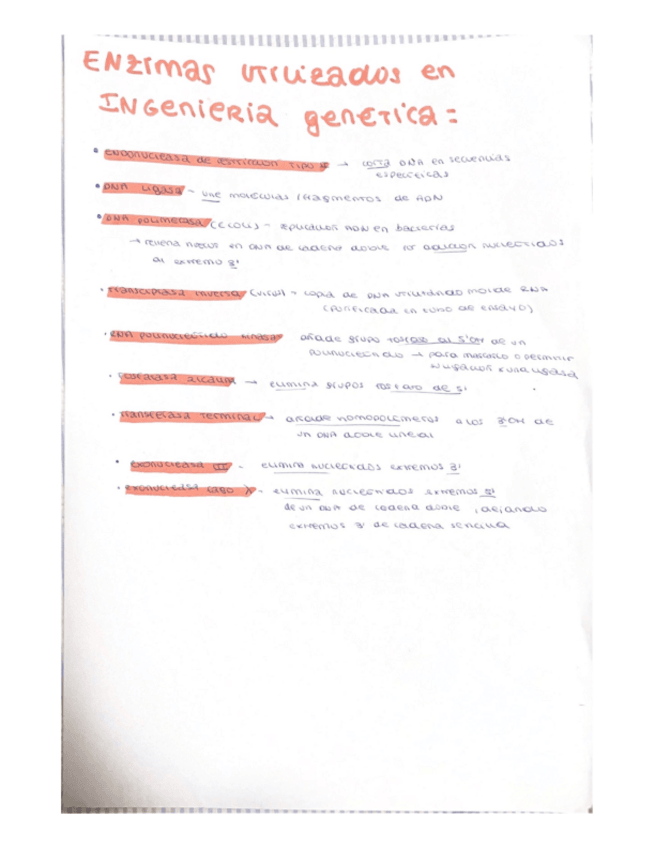 Enzimas utilizados en
Ingenieria genetica:
• endonucleasa de restriccion tipo II → corta DNA en secuencias
especificas
• DNA ligasa - une moleculas / fragmentos de ADN
• DNA polimerasa (E.coli) - replicación ADN en bacterias
→ rellena huecos en DNA de cadena doble por adicion nucleotidos
al extremo 3'
• transcriptasa inversa (virus) - copia de DNA utilizando molde RNA
(purificada en tubo de ensayo)
• polinucleotido kinasa añade grupo fosfato al 5'OH de un
polinucleotido → para marcarlo o permitir
ligasa
• fosfatasa alcalina → elimina grupos fosfato de 5'
• transferasa terminal → añade homopolimeros a los 3'OH de
un DNA doble lineal
• exonucleasa III - elimina nucleotidos extremos 3'
• exonucleasa fago λ - elimina nucleotidos extremos 5'
de un DNA de cadena doble, dejando
extremos 3' de cadena sencilla